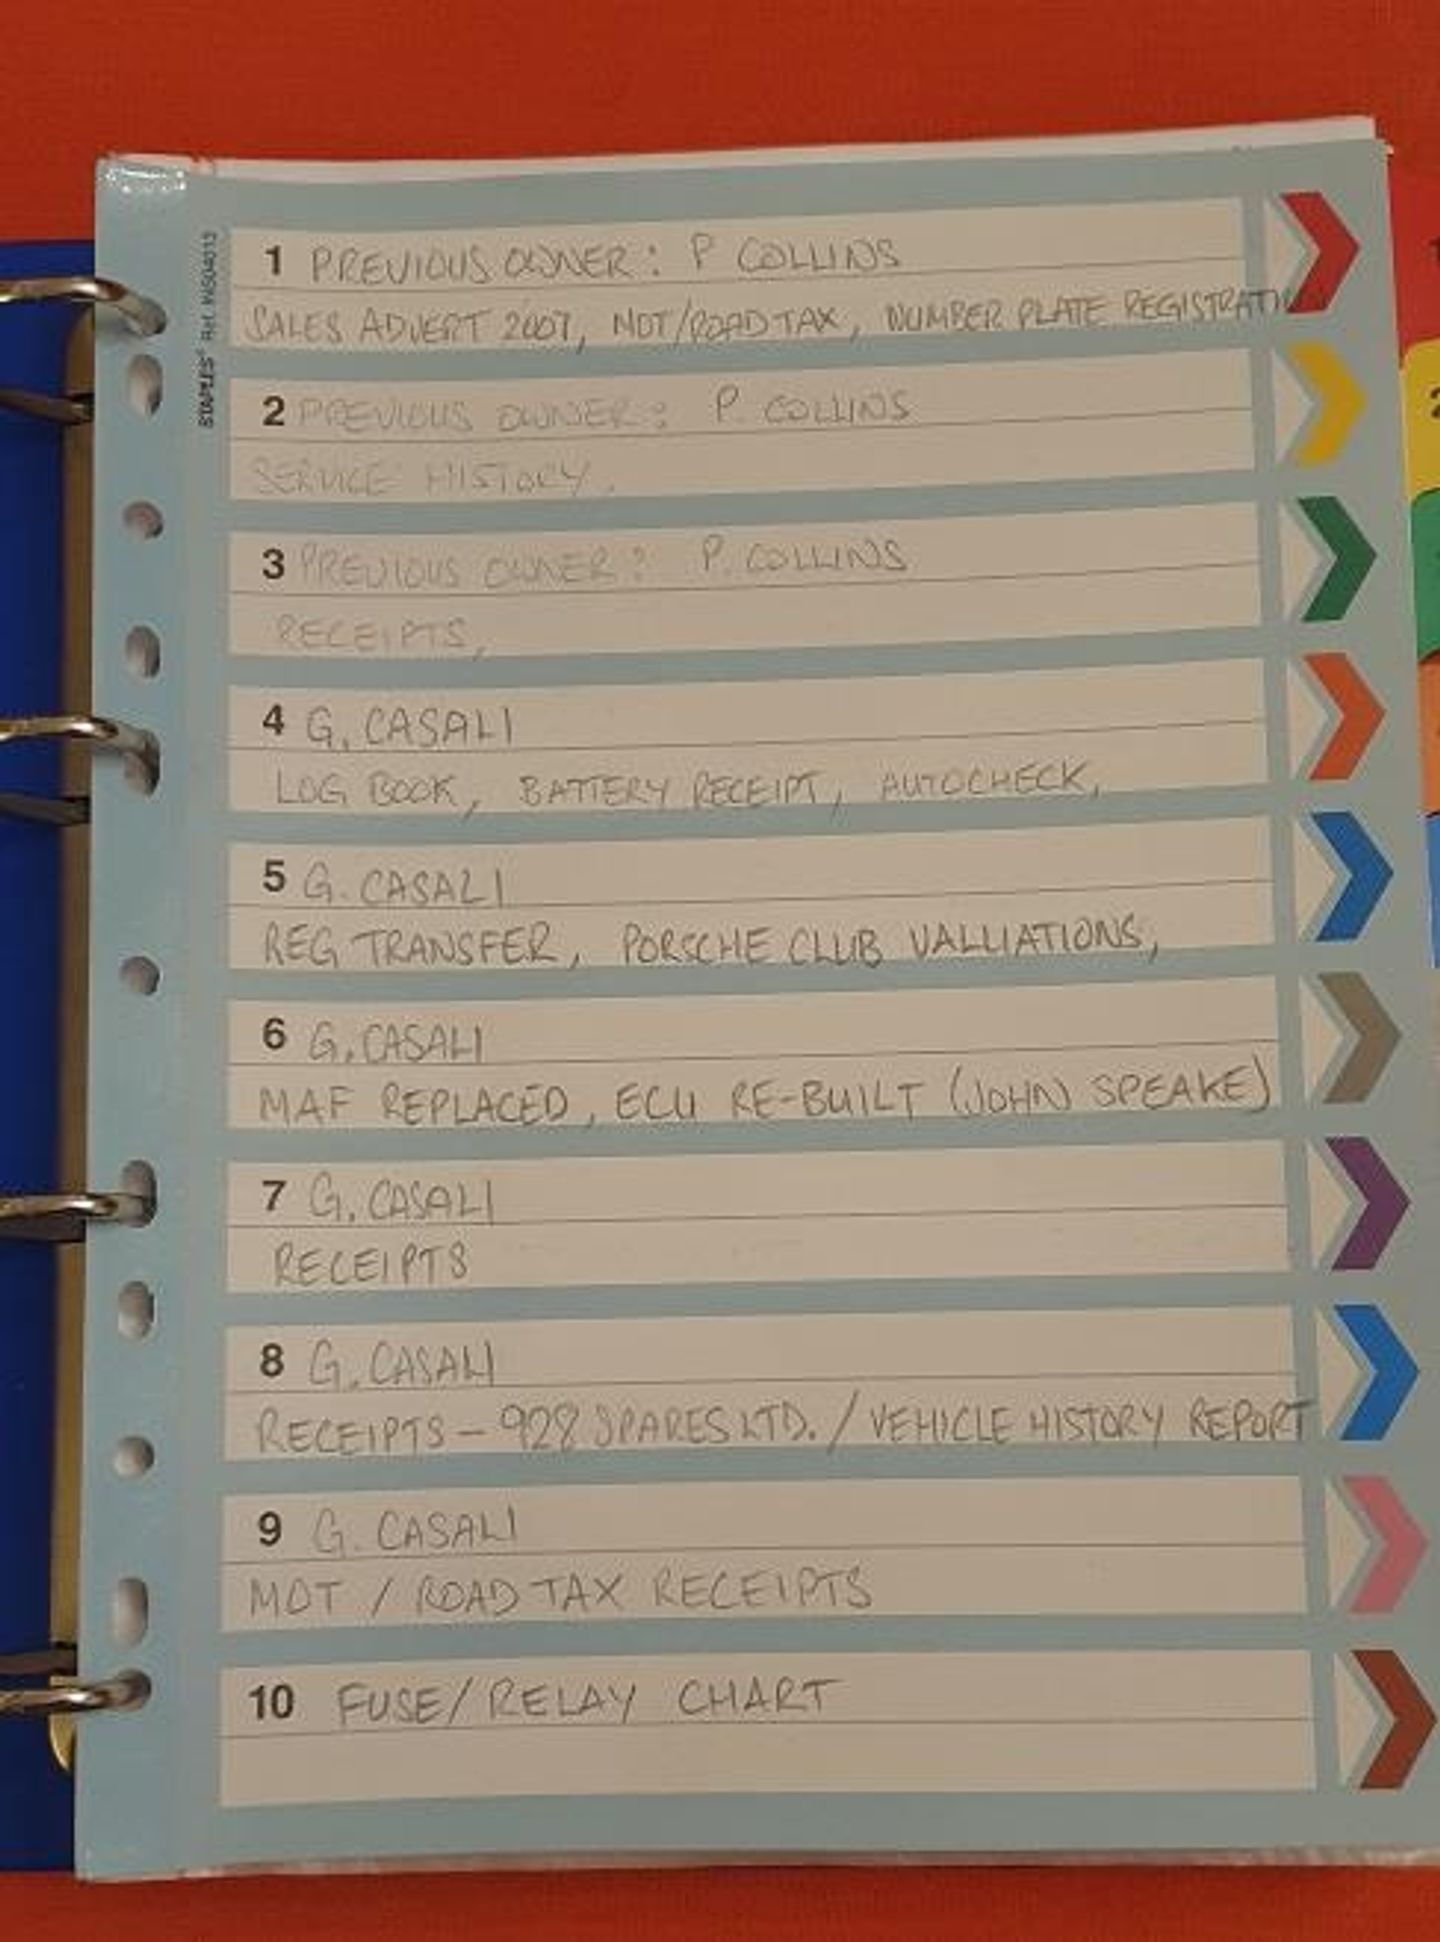 STAPLES® Ref. MS04013
1 PREVIOUS OWNER: P COLLINS
SALES ADVERT 2007, MOT/ROAD TAX, NUMBER PLATE REGISTRATIO
2 PREVIOUS OWNER: P. COLLINS
SERVICE HISTORY.
3 PREVIOUS OWNER: P. COLLINS
RECEIPTS,
4 G. CASALI
LOG BOOK, BATTERY RECEIPT, AUTOCHECK,
5 G. CASALI
REG TRANSFER, PORSCHE CLUB VALUATIONS,
6 G. CASALI
MAF REPLACED, ECU RE-BUILT (JOHN SPEAKE)
7 G. CASALI
RECEIPTS
8 G. CASALI
RECEIPTS - 928 SPARES LTD. / VEHICLE HISTORY REPORT
9 G. CASALI
MOT / ROAD TAX RECEIPTS
10 FUSE/RELAY CHART